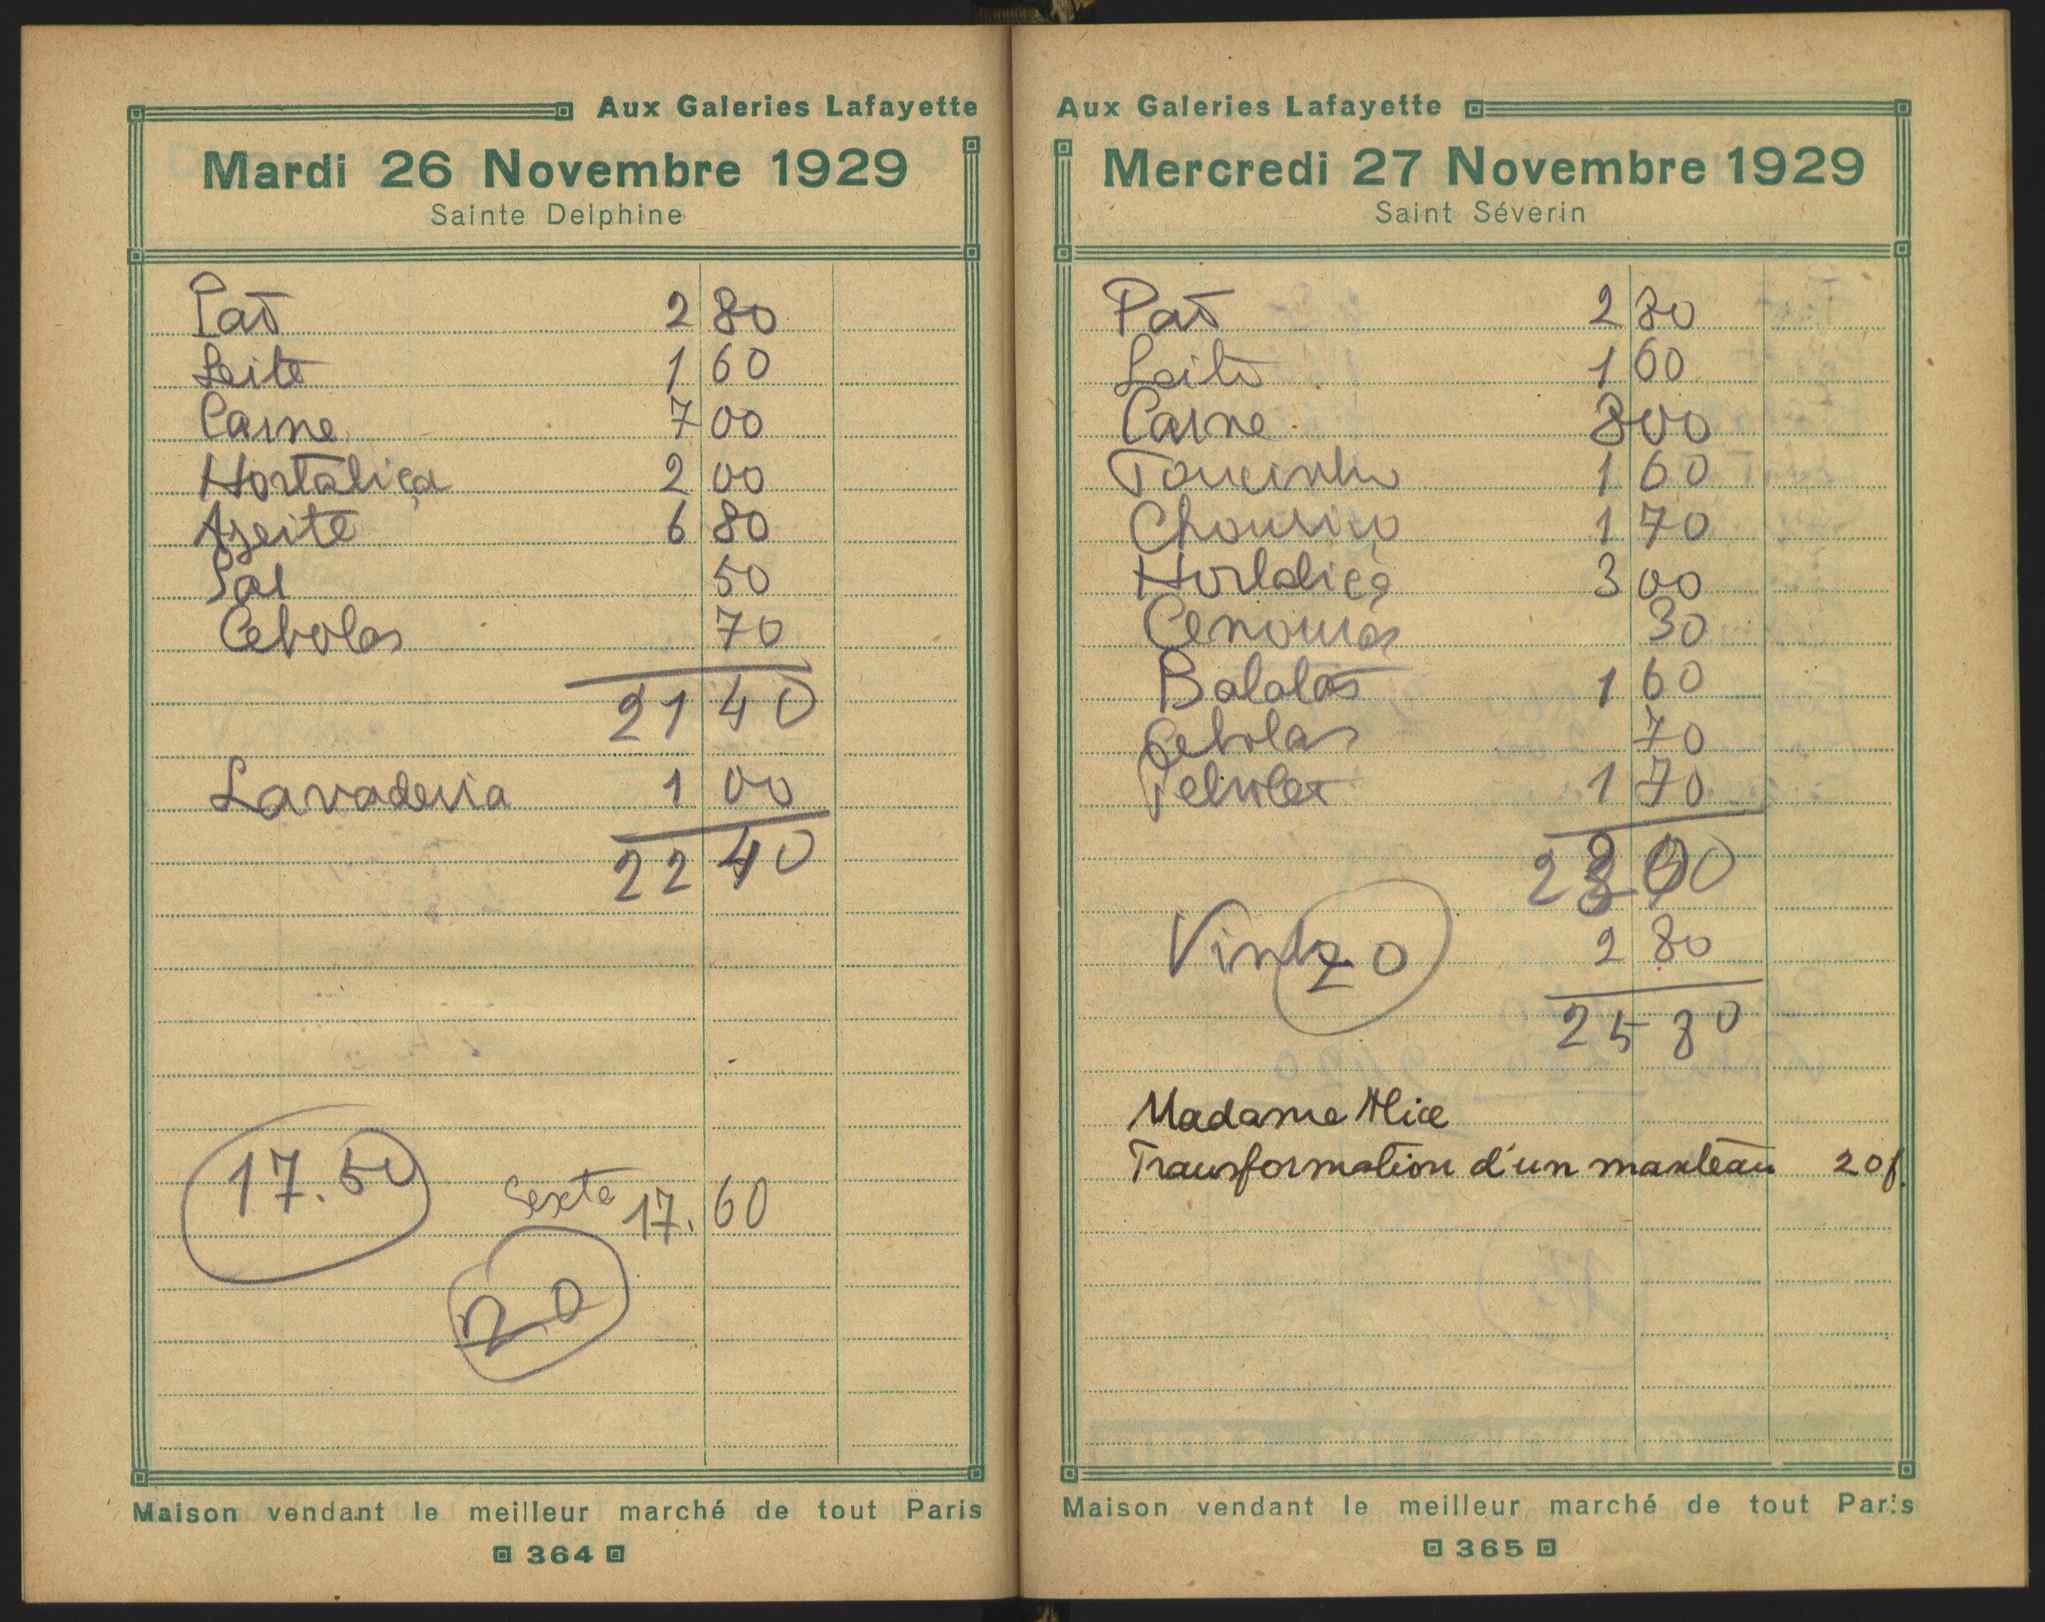 Aux Galeries Lafayette
Mardi 26 Novembre 1929
Sainte Delphine
Pão 2 80
Leite 1 60
Carne 7 00
Hortaliça 2 00
Azeite 6 80
Sal 50
Cebolas 70
21 40
Lavaderia 1 00
22 40
17.50
Sexta 17. 60
20
Maison vendant le meilleur marché de tout Paris
364
Aux Galeries Lafayette
Mercredi 27 Novembre 1929
Saint Séverin
Pão 2 80
Leite 1 60
Carne 8 00
Toucinho 1 60
Chouriço 1 70
Hortaliça 3 00
Cenouras 30
Batatas 1 60
Cebolas 70
1 70
Vinho 20 2 80
25 80
Madame Alice
Transformation d'un manteau 20f.
Maison vendant le meilleur marché de tout Paris
365